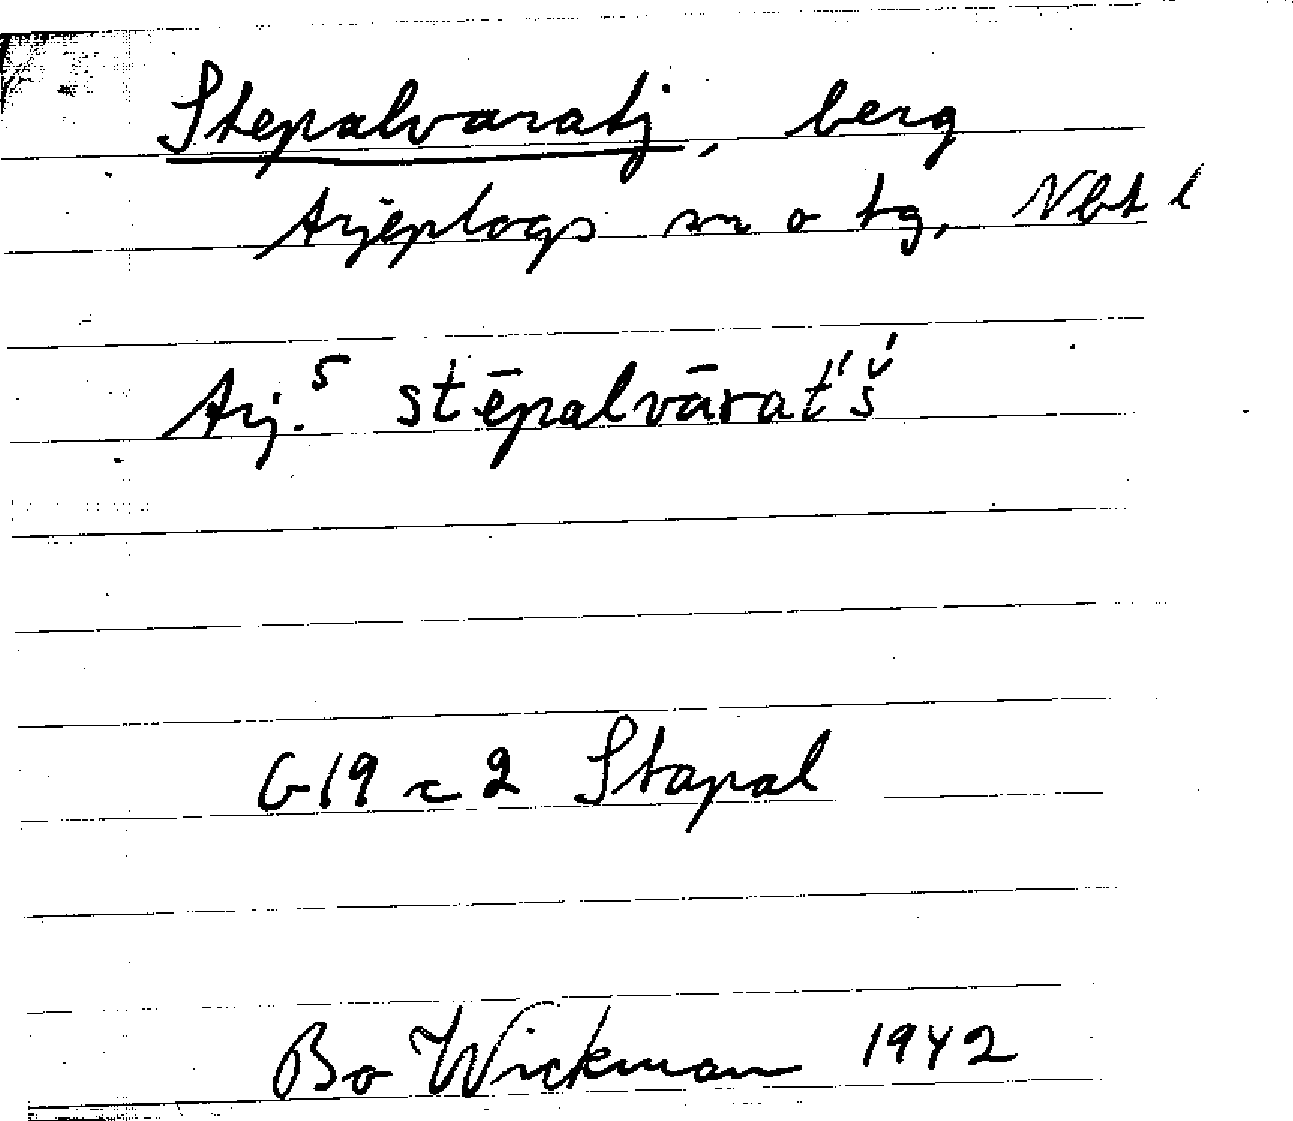 Stepalvaratj, berg
Arjeplogs sn o tg, Nbt l
Arj.⁵ stēpalvārat́'š́
G19 c 2 Stapal
Bo Wickman 1942